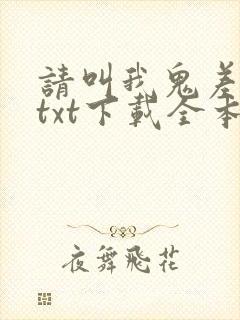 請叫我鬼差
txt下載全本
夜舞飛花